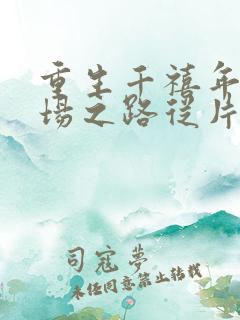 重生千禧年
場之路從片
司寇夢
未经同意禁止转载